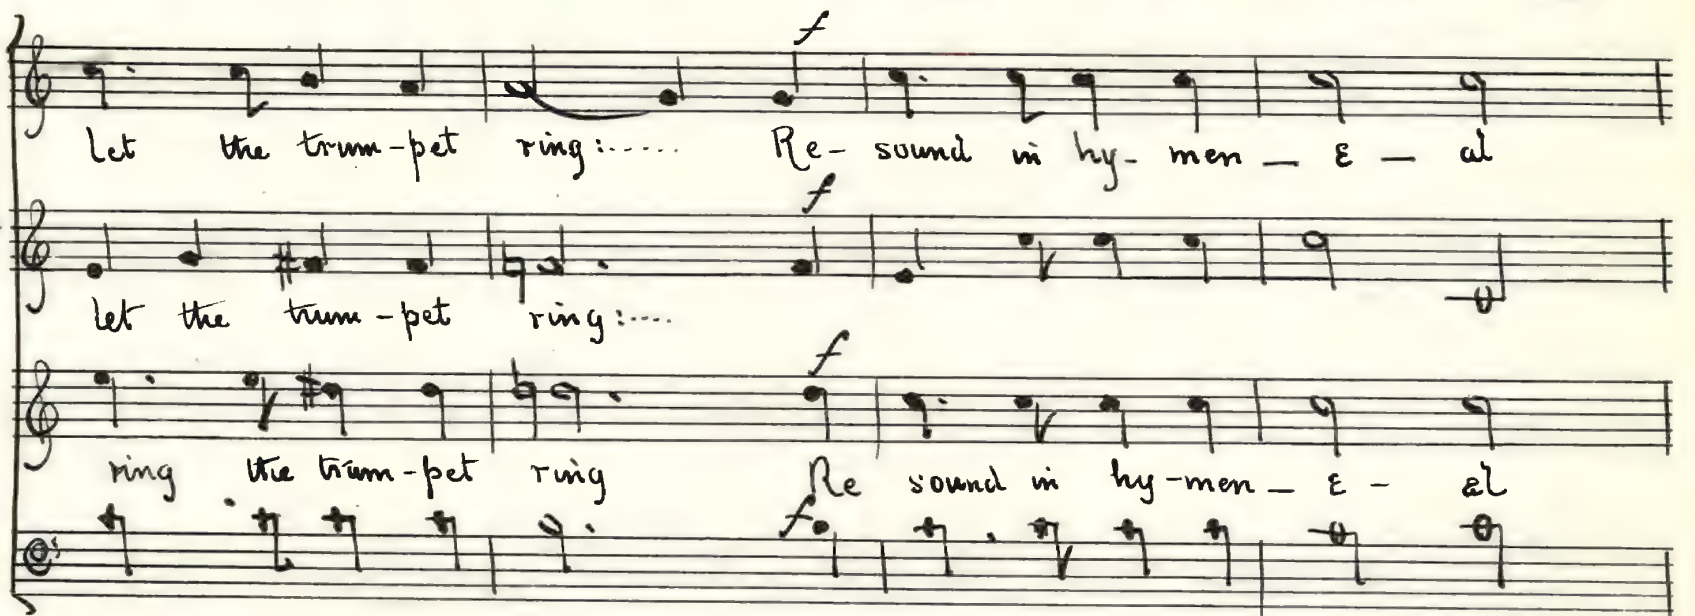 f
Let the trum-pet ring:..... Re- sound in hy- men — ε — al
f
let the trum-pet ring:....
f
ring the trum-pet ring Re sound in hy-men — ε - al
f